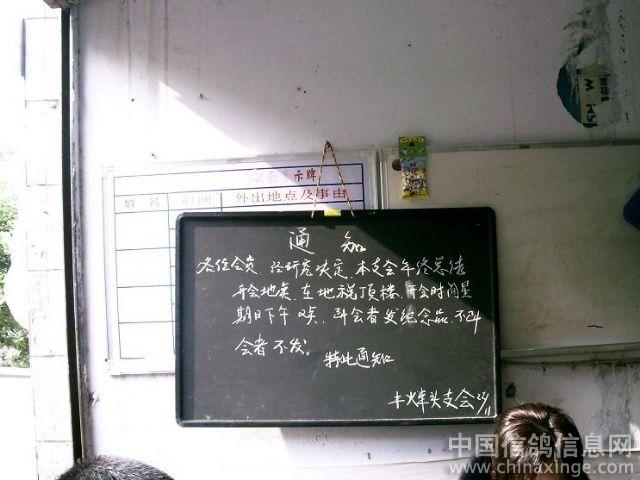 示牌
姓 名 时间 外出地点及事由
通 知
各位会员、经研究决定、本支会年终总结
开会地点、在地税顶楼、开会时间星
期日下午2点、到会者发纪念品、不到
会者不发。 特此通知
火车头支会
中国信鸽信息网
www.chinaxinge.com